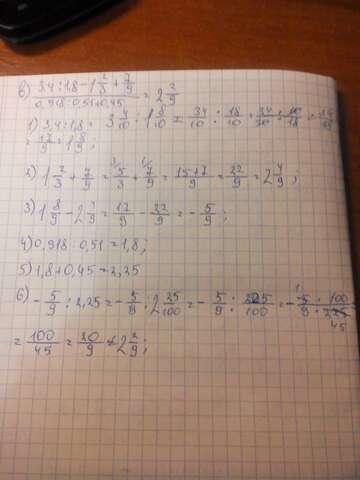 в) (3,4 : 1,8 − 1 2/3 + 7/9) / (0,918 : 0,51 + 0,45) = 2 2/9
1) 3,4 : 1,8 = 3 4/10 : 1 8/10 = 34/10 : 18/10 = 34/10 · 10/18 = 34/18
= 17/9 = 1 8/9 ;
2) 1 2/3 + 7/9 = 5/3 + 7/9 = 15+7/9 = 22/9 = 2 4/9 ;
3) 1 8/9 − 2 4/9 = 17/9 − 22/9 = − 5/9 ;
4) 0,918 : 0,51 = 1,8 ;
5) 1,8 + 0,45 = 2,25
6) − 5/9 : 2,25 = − 5/9 : 2 25/100 = − 5/9 : 225/100 = − 5/9 · 100/225 45
= 100/45 = 20/9 = 2 2/9 ;